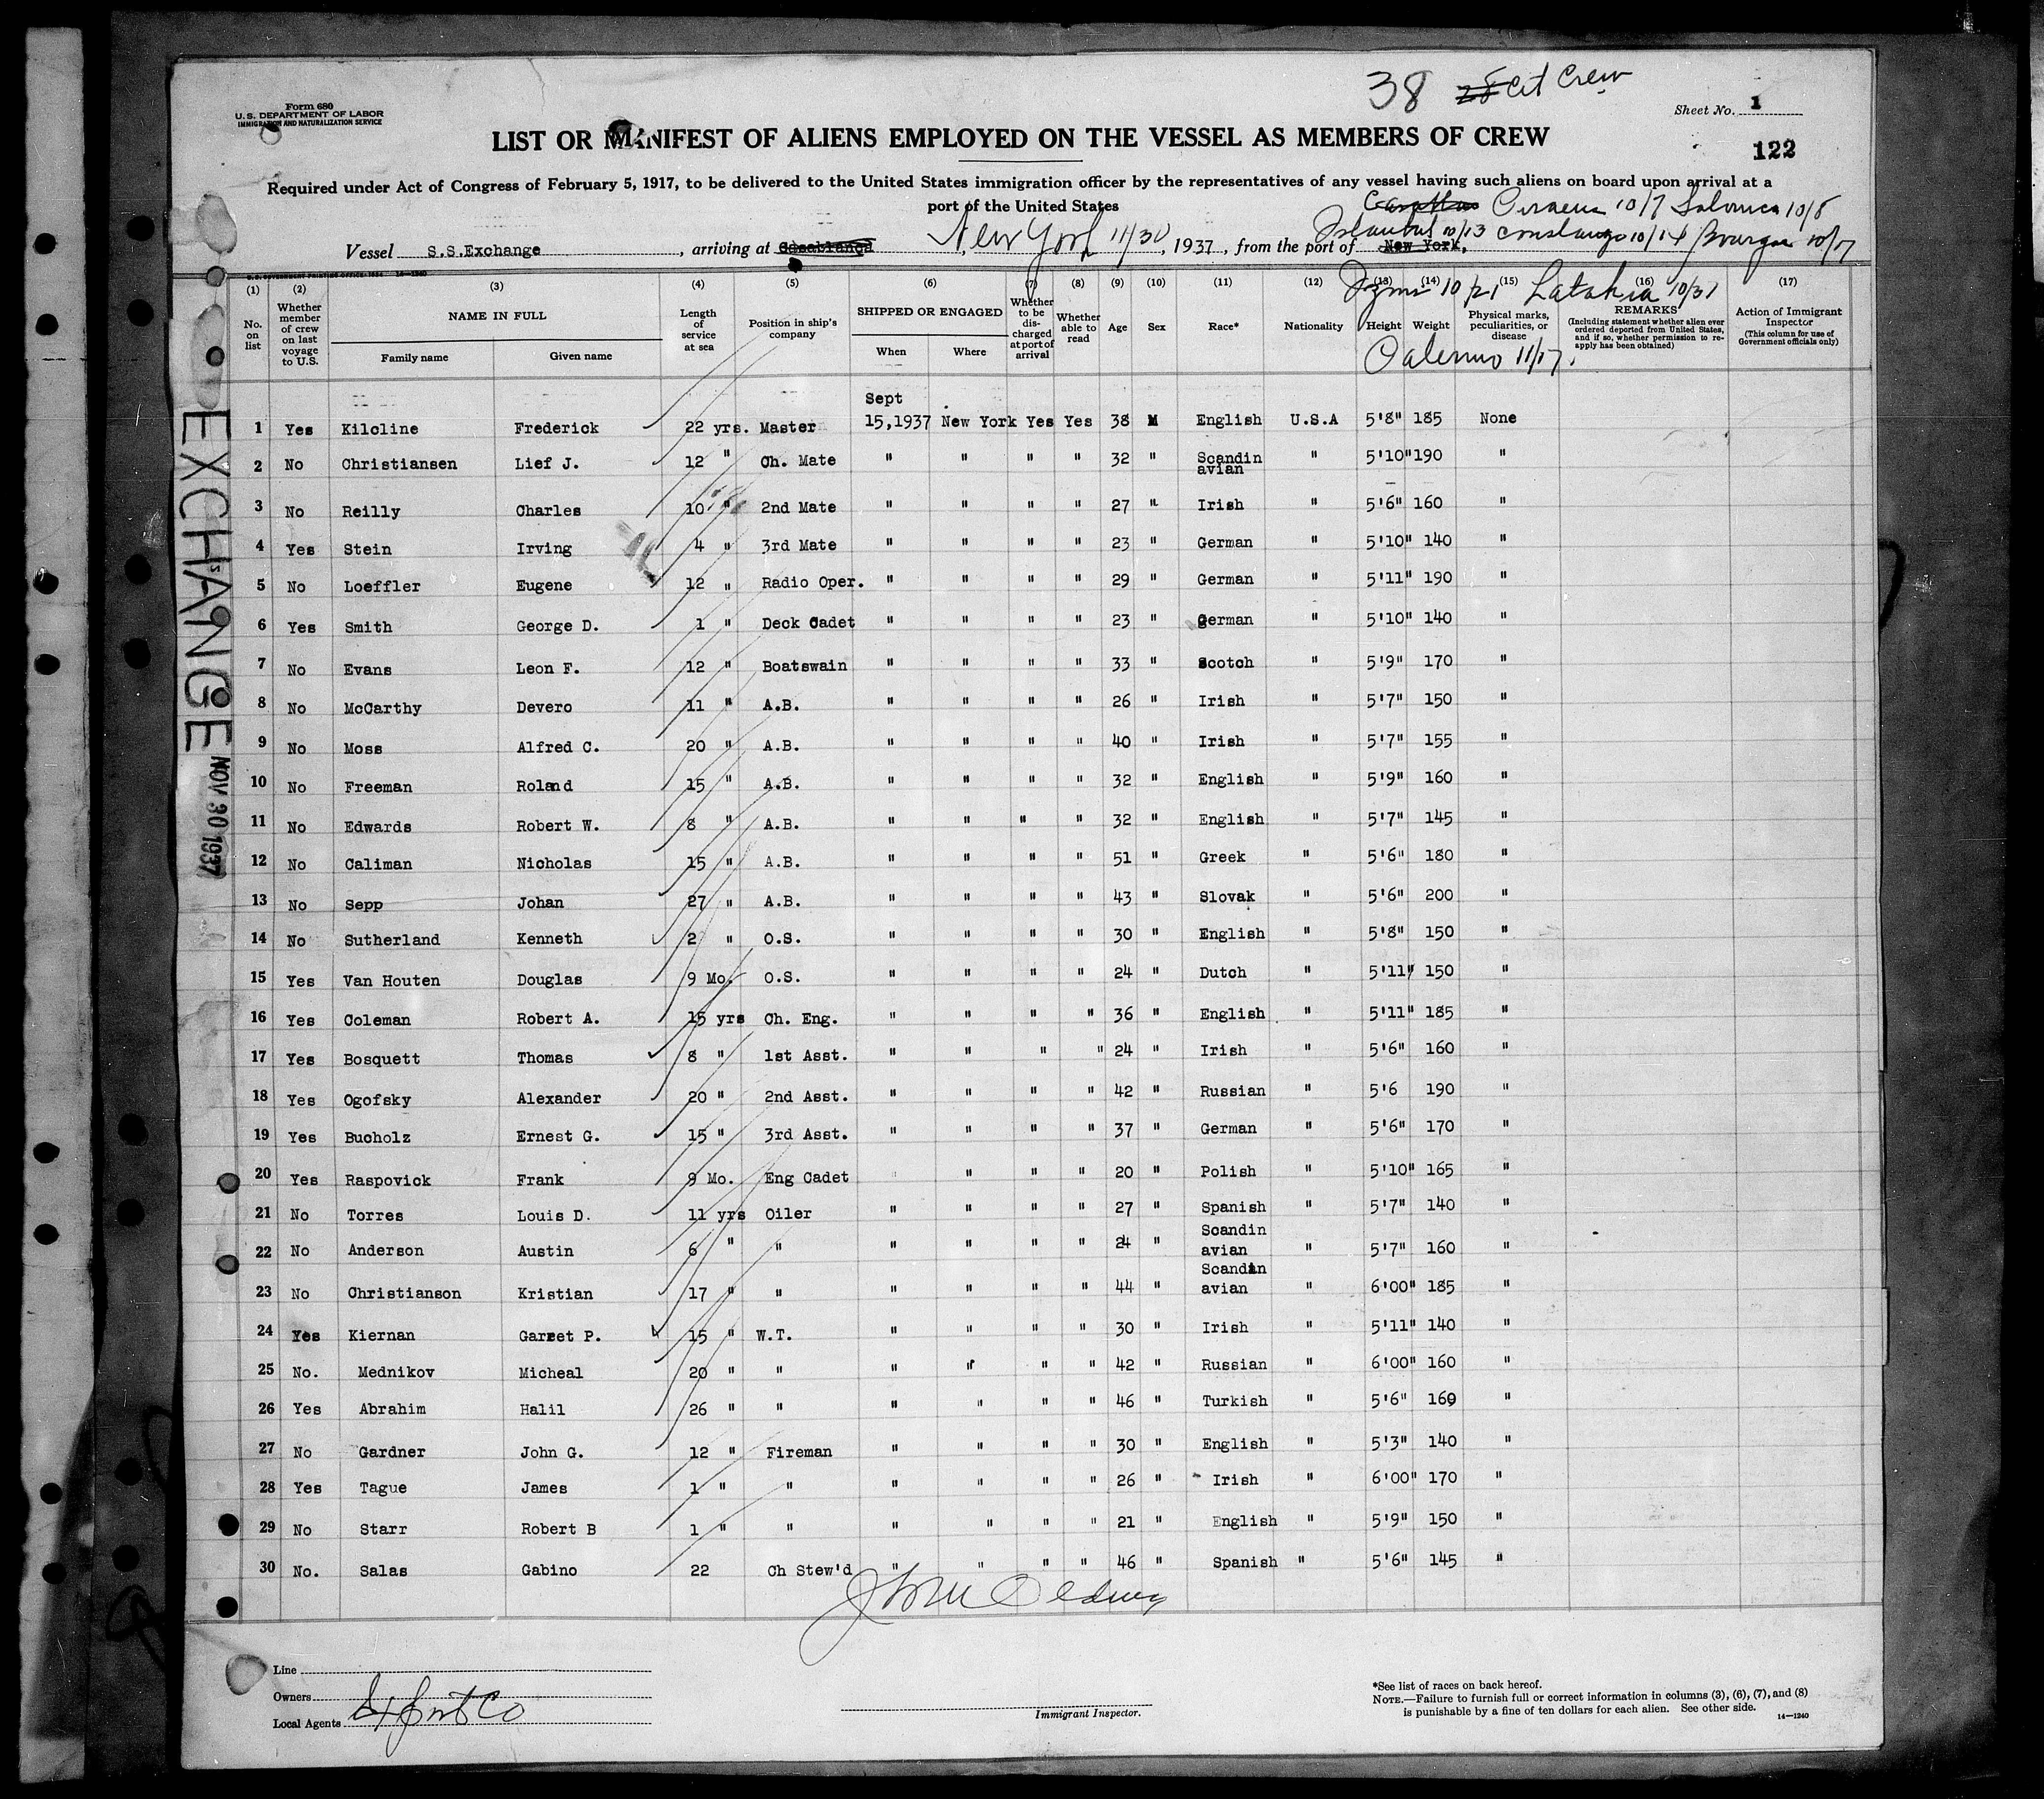 38 Cit Crew
Form 680
U.S. DEPARTMENT OF LABOR
IMMIGRATION AND NATURALIZATION SERVICE
Sheet No. 1
LIST OR MANIFEST OF ALIENS EMPLOYED ON THE VESSEL AS MEMBERS OF CREW
122
Required under Act of Congress of February 5, 1917, to be delivered to the United States immigration officer by the representatives of any vessel having such aliens on board upon arrival at a
port of the United States
Piraeus 10/7 Salonica 10/8
Istanbul 10/13 Constanza 10/14 Bourgas 10/17
Vessel S.S.Exchange, arriving at Casablanca, New York 11/30, 1937, from the port of New York,
U.S. GOVERNMENT PRINTING OFFICE: 1934 14—1240
Izmir 10/21 Latakia 10/31
Palermo 11/17.
(1) (2) (3) (4) (5) (6) (7) (8) (9) (10) (11) (12) (13) (14) (15) (16) (17)
No. on list
Whether member of crew on last voyage to U.S.
NAME IN FULL
Family name Given name
Length of service at sea
Position in ship's company
SHIPPED OR ENGAGED
When Where
Whether to be discharged at port of arrival
Whether able to read
Age Sex Race* Nationality Height Weight
Physical marks, peculiarities, or disease
REMARKS
(Including statement whether alien ever ordered deported from United States, and if so, whether permission to reapply has been obtained)
Action of Immigrant Inspector
(This column for use of Government officials only)
EXCHANGE
NOV 30 1937
Sept
1 Yes Kilcline Frederick 22 yrs. Master 15,1937 New York Yes Yes 38 M English U.S.A 5'8" 185 None
2 No Christiansen Lief J. 12 " Ch. Mate " " " " 32 " Scandin avian " 5'10" 190 "
3 No Reilly Charles 10 " 2nd Mate " " " " 27 " Irish " 5'6" 160 "
4 Yes Stein Irving 4 " 3rd Mate " " " " 23 " German " 5'10" 140 "
5 No Loeffler Eugene 12 " Radio Oper. " " " " 29 " German " 5'11" 190 "
6 Yes Smith George D. 1 " Deck Cadet " " " " 23 " German " 5'10" 140 "
7 No Evans Leon F. 12 " Boatswain " " " " 33 " Scotch " 5'9" 170 "
8 No McCarthy Devero 11 " A.B. " " " " 26 " Irish " 5'7" 150 "
9 No Moss Alfred C. 20 " A.B. " " " " 40 " Irish " 5'7" 155 "
10 No Freeman Roland 15 " A.B. " " " " 32 " English " 5'9" 160 "
11 No Edwards Robert W. 8 " A.B. " " " " 32 " English " 5'7" 145 "
12 No Caliman Nicholas 15 " A.B. " " " " 51 " Greek " 5'6" 180 "
13 No Sepp Johan 27 " A.B. " " " " 43 " Slovak " 5'6" 200 "
14 No Sutherland Kenneth 2 " O.S. " " " " 30 " English " 5'8" 150 "
15 Yes Van Houten Douglas 9 Mo. O.S. " " " " 24 " Dutch " 5'11" 150 "
16 Yes Coleman Robert A. 15 yrs Ch. Eng. " " " " 36 " English " 5'11" 185 "
17 Yes Bosquett Thomas 8 " 1st Asst. " " " " 24 " Irish " 5'6" 160 "
18 Yes Ogofsky Alexander 20 " 2nd Asst. " " " " 42 " Russian " 5'6 190 "
19 Yes Bucholz Ernest G. 15 " 3rd Asst. " " " " 37 " German " 5'6" 170 "
20 Yes Raspovick Frank 9 Mo. Eng Cadet " " " 20 " Polish " 5'10" 165 "
21 No Torres Louis D. 11 yrs Oiler " " " " 27 " Spanish " 5'7" 140 "
22 No Anderson Austin 6 " " " " " " 24 " Scandin avian " 5'7" 160 "
23 No Christianson Kristian 17 " " " " " " 44 " Scandin avian " 6'00" 185 "
24 Yes Kiernan Garret P. 15 " W.T. " " " " 30 " Irish " 5'11" 140 "
25 No. Mednikov Micheal 20 " " " " " " 42 " Russian " 6'00" 160 "
26 Yes Abrahim Halil 26 " " " " " " 46 " Turkish " 5'6" 169 "
27 No Gardner John G. 12 " Fireman " " " " 30 " English " 5'3" 140 "
28 Yes Tague James 1 " " " " " " 26 " Irish " 6'00" 170 "
29 No Starr Robert B 1 " " " " " " 21 " English " 5'9" 150 "
30 No. Salas Gabino 22 Ch Stew'd " " " " 46 " Spanish " 5'6" 145 "
Line
Owners
Local Agents Export Co
Immigrant Inspector.
*See list of races on back hereof.
NOTE.—Failure to furnish full or correct information in columns (3), (6), (7), and (8)
is punishable by a fine of ten dollars for each alien. See other side.
14—1240